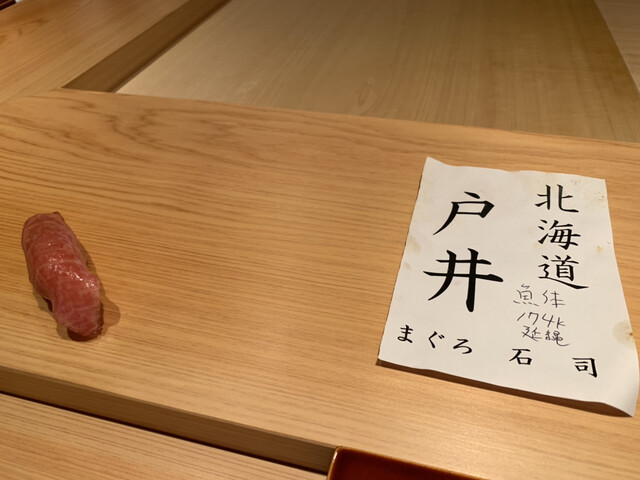 北海道
戸井
魚体
174k
延縄
まぐろ 石司